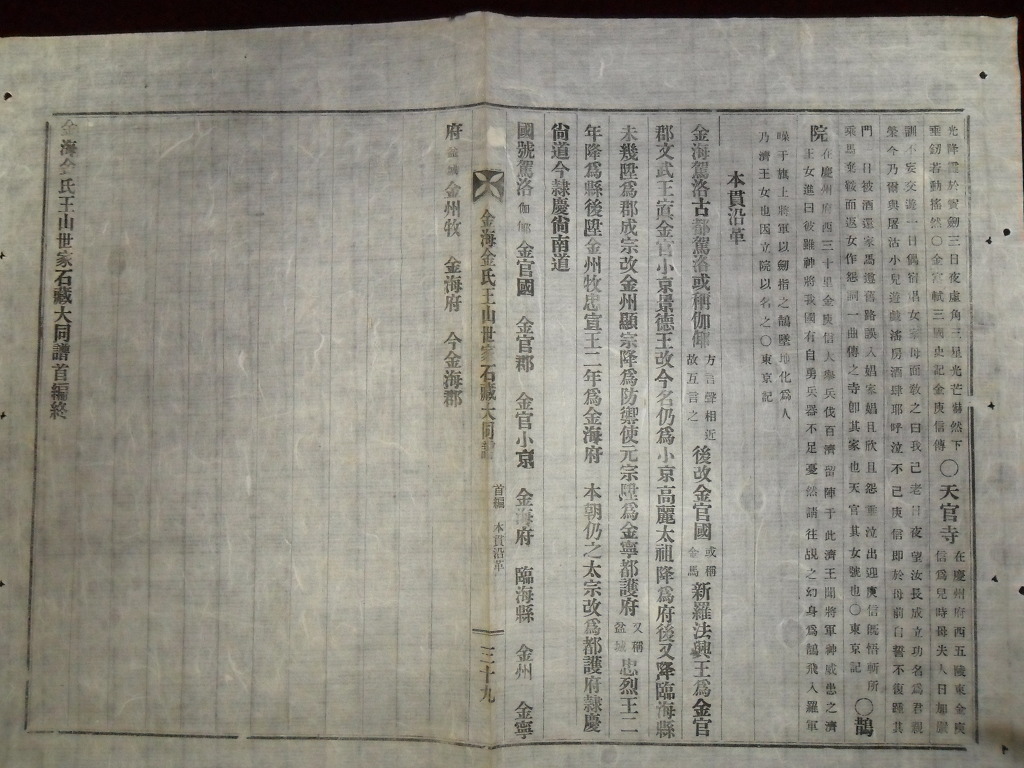 光降靈於寶劒三日夜虛角三星光芒赫然下
垂劒若動搖然〇金富軾三國史記金庾信傳
〇天官寺
在慶州府西五陵東金庾
信爲兒時母夫人日加嚴
訓不妄交遊一日偶宿娼女家母面敎之曰我已老日夜望汝長成立功名爲君親
榮今乃爾與屠沽小兒遊戲滛房酒肆耶呼泣不已庾信卽於母前自誓不復過其
門一日被酒還家馬遵舊路誤入娼家娼且欣且怨垂泣出迎庾信旣悟斬所
乘馬棄鞍而返女作怨詞一曲傳之寺卽其家也天官其女號也〇東京記
〇鵲
院
在慶州府西三十里金庾信大擧兵伐百濟留陣于此濟王聞將軍神威患之濟
王女進曰彼雖神將我國有自勇兵器不足憂然請往覘之幻身爲鵲飛入羅軍
噪于旗上將軍以劒指之鵲墜地化爲人
乃濟王女也因立院以名之〇東京記
本貫沿革
金海駕洛古都駕洛或稱伽倻
方言聲相近
故互言之
後改金官國
或稱
金馬
新羅法興王爲金官
郡文武王寘金官小京景德王改今名仍爲小京高麗太祖降爲府後又降臨海縣
未幾陞爲郡成宗改金州顯宗降爲防禦使元宗陞爲金寧都護府
又稱
盆城
忠烈王二
年降爲縣後陞金州牧忠宣王二年爲金海府 本朝仍之太宗改爲都護府隷慶
尙道今隷慶尙南道
國號駕洛 伽倻 金官國 金官郡 金官小京 金海府 臨海縣 金州 金寧
金海金氏王山世家石藏大同譜 首編 本貫沿革 三十九
府 盆城 金州牧 金海府 今金海郡
金海金氏王山世家石藏大同譜首編終